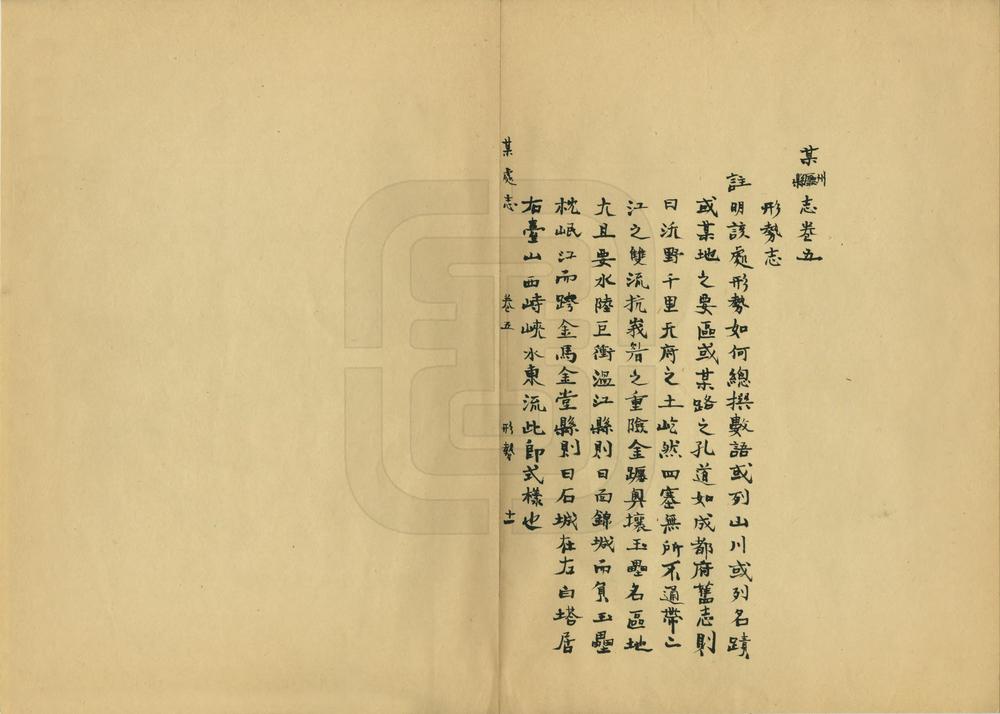 某州廳縣志卷五
形勢志
註明該處形勢如何總撰數語或列山川或列名蹟
或某地之要區或某路之孔道如成都府舊志則
曰沃野千里天府之土屹然四塞無所不通帶二
江之雙流抗峩眉之重險金躔奧壤玉壘名區地
大且要水陸巨衝溫江縣則曰面錦城而負玉壘
枕岷江而跨金馬金堂縣則曰石城在左白塔居
右臺山西峙峽水東流此即式樣也
某處志 卷五 形勢 十一